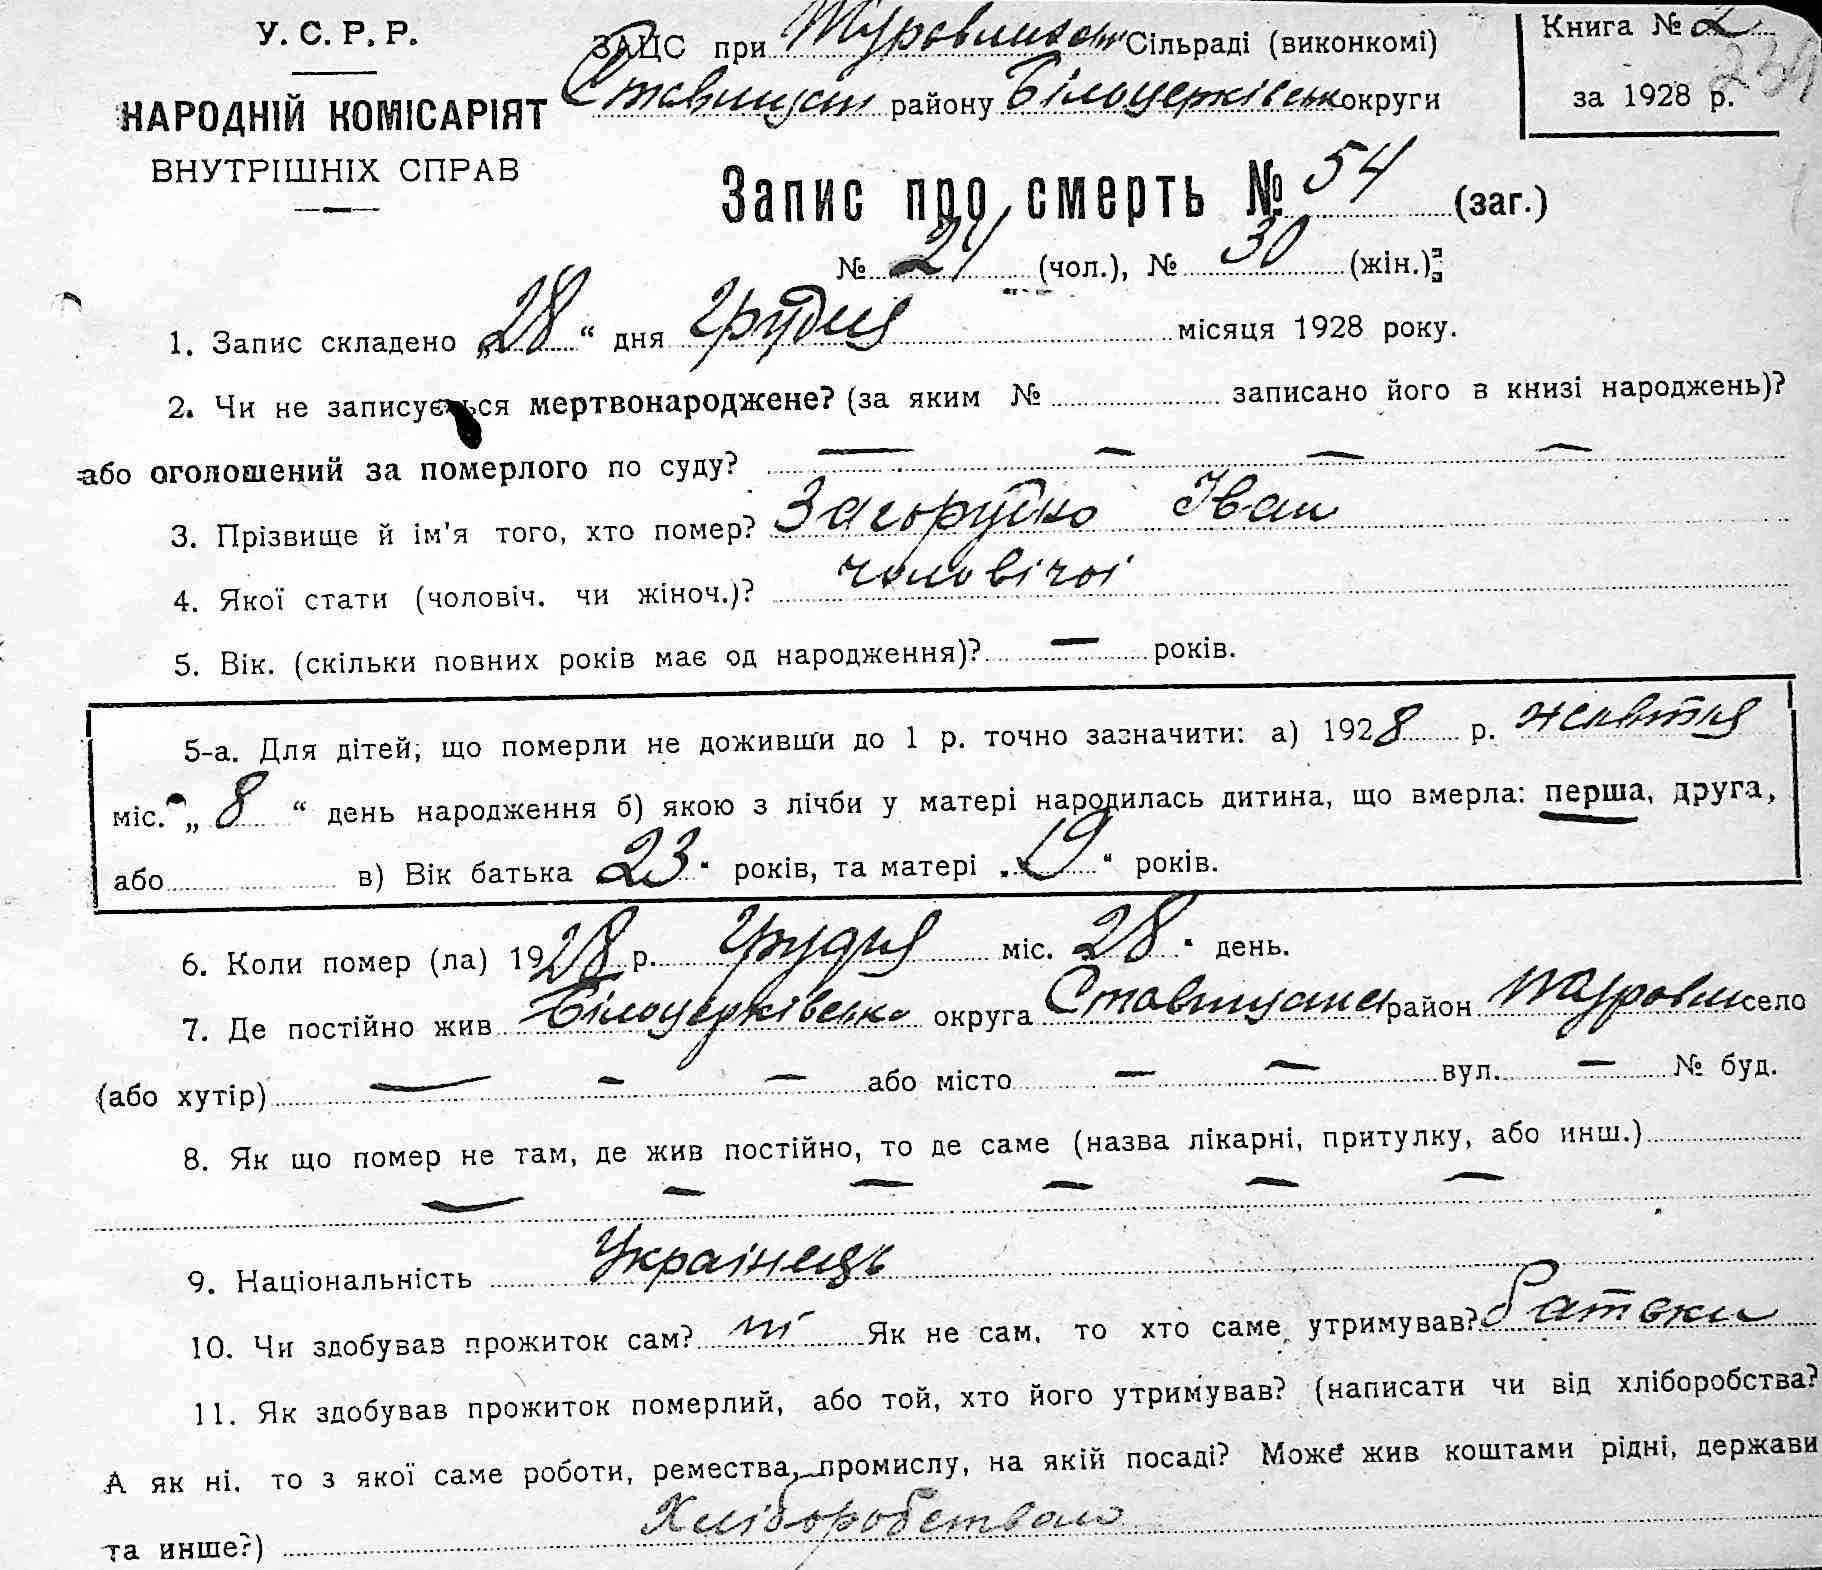 У. С. Р. Р.
НАРОДНІЙ КОМІСАРІЯТ
ВНУТРІШНІХ СПРАВ
ЗАЦС при Журавлиськ Сільраді (виконкомі)
Ставищан району Білоцерківськ округи
Книга № 2
за 1928 р.
239
Запис про смерть № 54 (заг.)
№ 24 (чол.), № 30 (жін.)
1. Запис складено „28“ дня Грудня місяця 1928 року.
2. Чи не записується мертвонароджене? (за яким № записано його в книзі народжень)?
або оголошений за померлого по суду? — — — —
3. Прізвище й ім'я того, хто помер? Загорудько Іван
4. Якої стати (чоловіч. чи жіноч.)? чоловічої
5. Вік. (скільки повних років має од народження)? — років.
5-а. Для дітей, що померли не доживши до 1 р. точно зазначити: а) 1928 р. жовтня
міс. „8“ день народження б) якою з лічби у матері народилась дитина, що вмерла: перша, друга,
або в) Вік батька 23 років, та матері „19“ років.
6. Коли помер (ла) 1928 р. Грудня міс. 28 день.
7. Де постійно жив Білоцерківська округа Ставищанськ район село
(або хутір) — — — або місто — — вул. — № буд.
8. Як що помер не там, де жив постійно, то де саме (назва лікарні, притулку, або инш.)
— — — — — —
9. Національність Українець
10. Чи здобував прожиток сам? ні Як не сам, то хто саме утримував? батьки
11. Як здобував прожиток померлий, або той, хто його утримував? (написати чи від хліборобства?
А як ні, то з якої саме роботи, ремества, промислу, на якій посаді? Може жив коштами рідні, держави
та инше?) Хліборобством